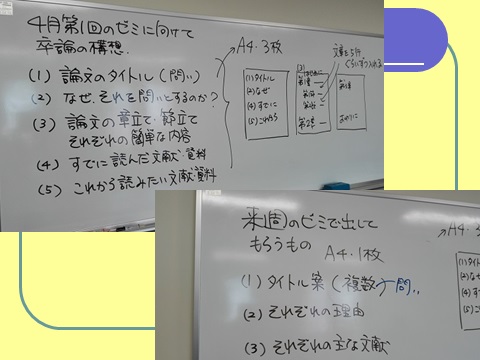 4月第1回のゼミに向けて
卒論の構想.
(1) 論文のタイトル (問い)
(2) なぜ、それを問いとするのか?
(3) 論文の章立て・節立て
それぞれの簡単な内容
(4) すでに読んだ文献・資料
(5) これから読みたい文献・資料
A4・3枚
(1)タイトル
(2)なぜ
(4)すでに
(5)これから
(3)
はじめに
第1章
第2章
おわりに
来週のゼミで出して
もらうもの A4・1枚
(1) タイトル案 (複数) 問い
(2) それぞれの理由
(3) それぞれの主な文献
A4・3
(1)タイト
(2)なぜ
(4)すで
(5)これ